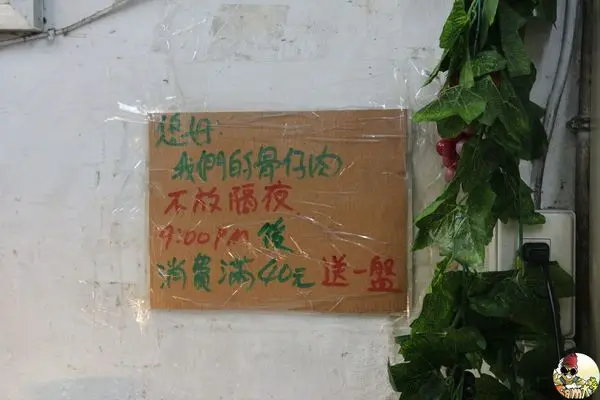 您好
我們的骨仔肉
不放隔夜
9:00PM 後
消費滿40元送一盤